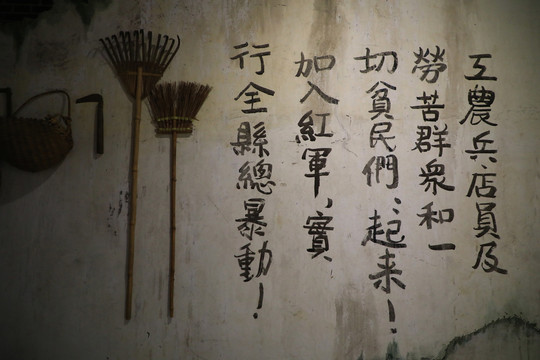 工農兵店員及
勞苦群衆和一
切貧民們：起来！
加入紅軍，實
行全縣總暴動！